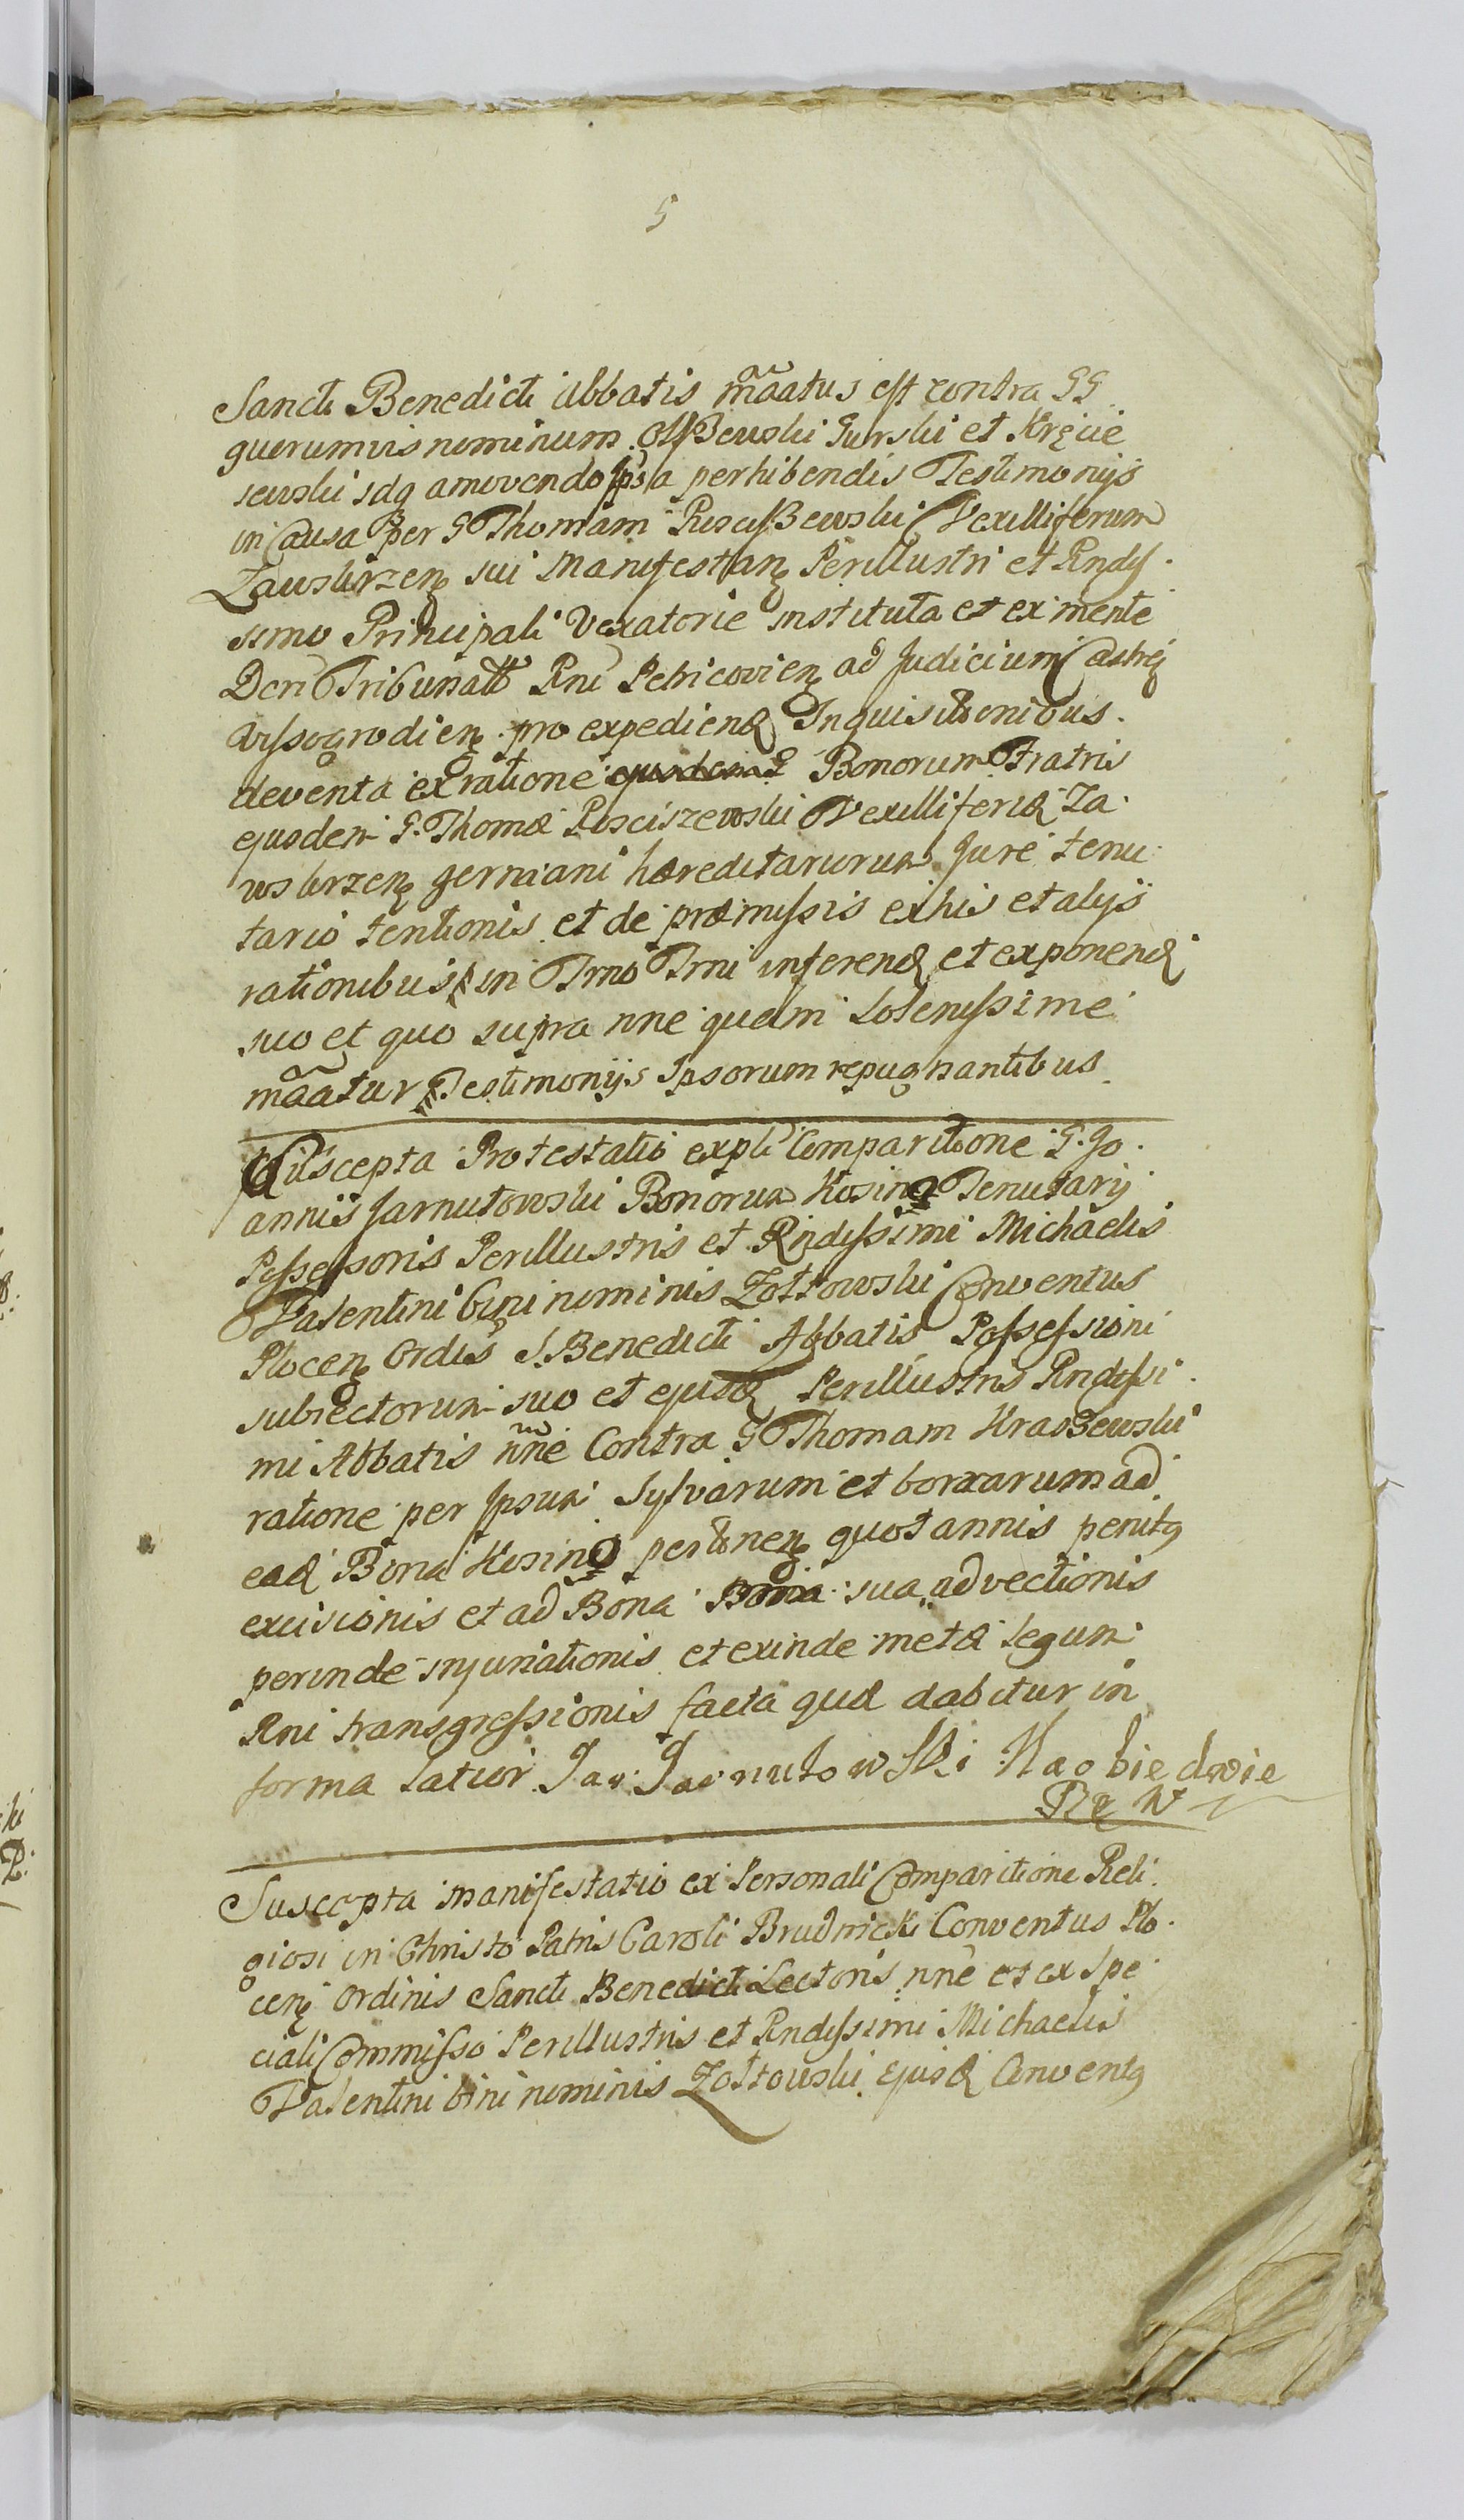 5
Sancti Benedicti Abbatis mãatus est contra GG
quorumvis nominum Olszewski Gurski et Kręcie
sewski sdq amovendo Ipsa perhibendis Testimonijs
in Causa per G Thomam Rosciszewski Vexilliferum
Zawskrzen sui Manifestan Perillustri et Rndis.
simo Principali Vexatorie instituta et ex mente
Dcri Tribunalis Rni Petricovien ad Judicium Castren
Wyssogrodien pro expediend Inquisitionibus.
deventa ex ratione Bonorum Fratris
ejusdem G. Thomæ Rosciszewski Vexilliferi Za.
wskrzen germani hæreditariorum Jure tenu
tario tentionis et de præmissis ex his et alijs
rationibus in Trno Trni inferend et exponend
suo et quo supra nne quam Solenissime
mãatur Testimonijs Ipsorum repugnantibus
Suscepta Protestatio ex pli Comparitione G. Jo.
annis Jarnutowski Bonorum Kosino Tenutarij
Possessoris Perillustris et Rndissimi Michaelis
Valentini bini nominis Zołtowski Conventus
Plocen Ordis S. Benedicti Abbatis Possessioni
subiectorum suo et ejusd Perillustris Rndissi.
mi Abbatis nne Contra G Thomam Kraszewski
ratione per Ipsum Sylvarum et borrarum ad
ead Bona Kosino pertinen quot annis penitq
excisionis et ad Bona Bona sua advectionis
perinde injuriationis et exinde metæ Legum
Rni transgressionis facta quæ dabitur in
forma latiori Jan Jarnutowski Na obie dwie
Rę
Suscepta manifestatio ex Personali Comparitione Reli.
giosi in Christo Patris Caroli Brudnicki Conventus Plo.
cen Ordinis Sancti Benedicti Lectoris nne et ex Spe
ciali Commisso Perillustris et Rndissimi Michaelis
Valentini bini nominis Zołtowski ejusd Conventq